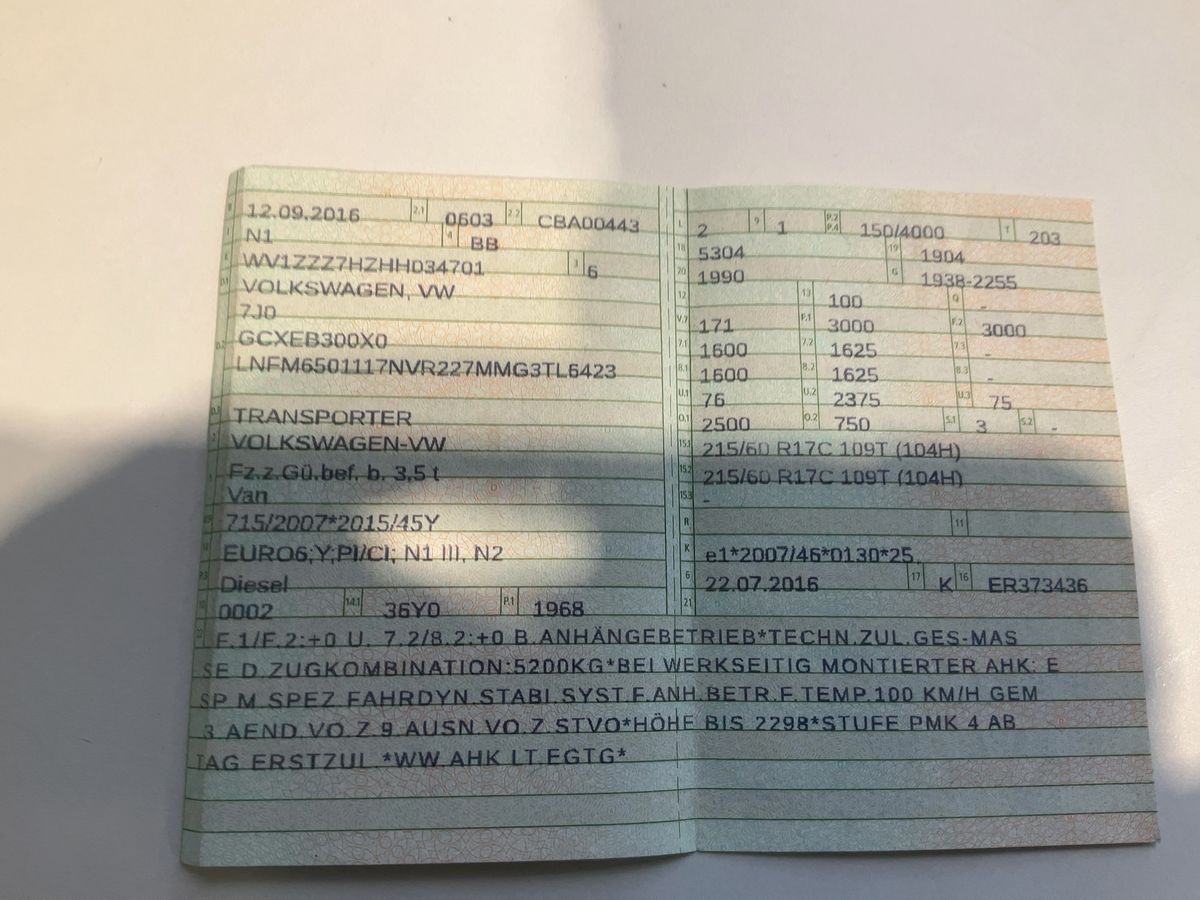 B 12.09.2016 2.1 0603 2.2 CBA00443
J N1 4 BB
E WV1ZZZ7HZHH034701 3 6
D.1 VOLKSWAGEN, VW
7J0
D.2 GCXEB300X0
LNFM6501117NVR227MMG3TL6423
D.3 TRANSPORTER
2 VOLKSWAGEN-VW
Fz.z.Gü.bef. b. 3,5 t
Van
715/2007*2015/45Y
EURO6;Y;PI/CI; N1 III, N2
P.3 Diesel
10 0002 14.1 36Y0 P.1 1968
L 2 9 1 P.2 P.4 150/4000 T 203
18 5304 19 1904
20 1990 G 1938-2255
12 13 100 Q -
V.7 171 F.1 3000 F.2 3000
7.1 1600 7.2 1625 7.3 -
8.1 1600 8.2 1625 8.3 -
U.1 76 U.2 2375 U.3 75
O.1 2500 O.2 750 S.1 3 S.2 -
15.1 215/60 R17C 109T (104H)
15.2 215/60 R17C 109T (104H)
15.3 -
R 11
K e1*2007/46*0130*25
6 22.07.2016 17 K 16 ER373436
21
F.1/F.2:+0 U. 7.2/8.2:+0 B.ANHÄNGEBETRIEB*TECHN.ZUL.GES-MAS
SE D.ZUGKOMBINATION:5200KG*BEI WERKSEITIG MONTIERTER AHK: E
SP M.SPEZ.FAHRDYN.STABI.SYST.F.ANH.BETR.F.TEMP.100 KM/H GEM
3.AEND.VO.Z.9.AUSN.VO.Z.STVO*HÖHE BIS 2298*STUFE PMK 4 AB
TAG ERSTZUL.*WW.AHK LT.EGTG*